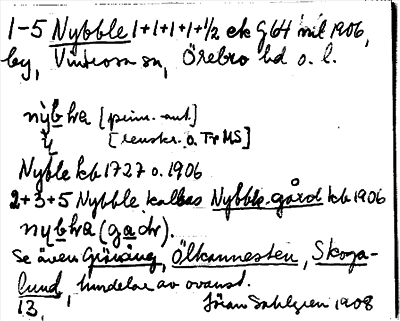 1-5 Nybble 1+1+1+1+1/2 ek g 64 mil 1906,
by, Vintrosa sn, Örebro hd o. l.
nybḷa [prim.-aut.]
[renskr. a. Tr MS]
Nyble kb 1727 o. 1906
2+3+5 Nybble kallas Nybble-gård kb 1906
nybḷa (gadr).
Se även Gröväng, Ölkannesten, Skoga-
lund, hundelar av ovanst.
13, Jöran Sahlgren 1908